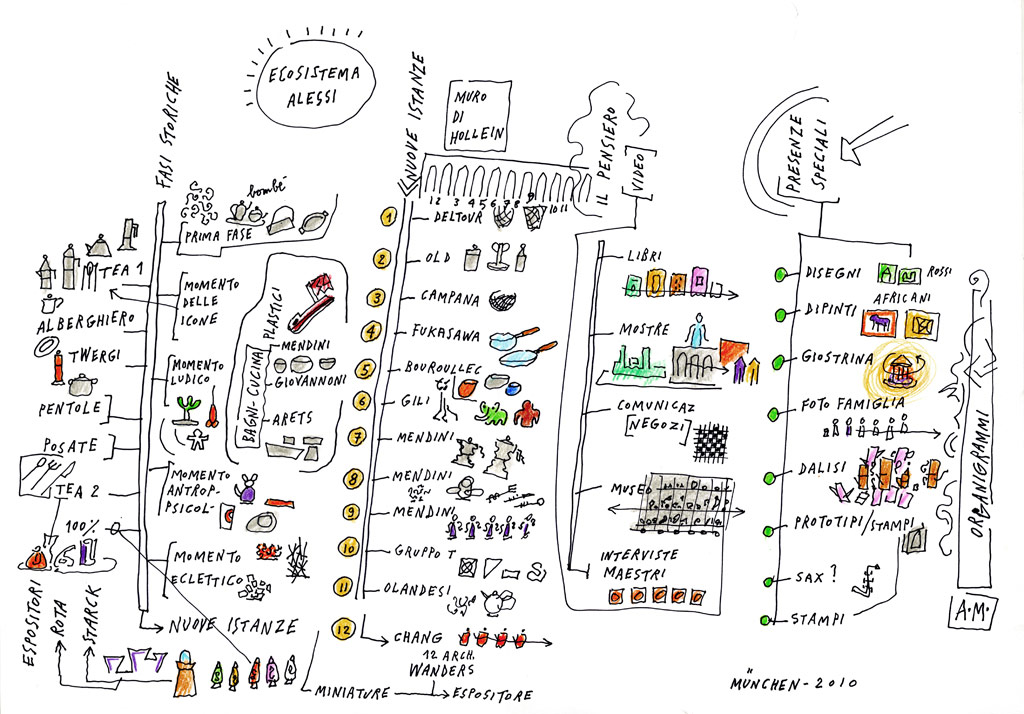 ECOSISTEMA
ALESSI
FASI STORICHE
bombé
PRIMA FASE
TEA 1
MOMENTO
DELLE
ICONE
ALBERGHIERO
TWERGI
MOMENTO
LUDICO
PENTOLE
POSATE
TEA 2
MOMENTO
ANTROP-
PSICOL-
100%
MOMENTO
ECLETTICO
NUOVE ISTANZE
ESPOSITORI
ROTA
STARCK
PLASTICI
BAGNI-CUCINA
MENDINI
GIOVANNONI
ARETS
NUOVE ISTANZE
MURO
DI
HOLLEIN
1 2 3 4 5 6 7 8 9 10 11
1 DELTOUR
2 OLD
3 CAMPANA
4 FUKASAWA
5 BOUROULLEC
6 GILI
7 MENDINI
8 MENDINI
9 MENDINI
10 GRUPPO T
11 OLANDESI
12 CHANG
12 ARCH.
WANDERS
MINIATURE
ESPOSITORE
IL PENSIERO
VIDEO
LIBRI
MOSTRE
COMUNICAZ
NEGOZI
MUSEO
INTERVISTE
MAESTRI
PRESENZE
SPECIALI
DISEGNI
ROSSI
AFRICANI
DIPINTI
GIOSTRINA
FOTO FAMIGLIA
DALISI
PROTOTIPI/STAMPI
SAX?
STAMPI
ORGANIGRAMMI
A.M.
MÜNCHEN-2010